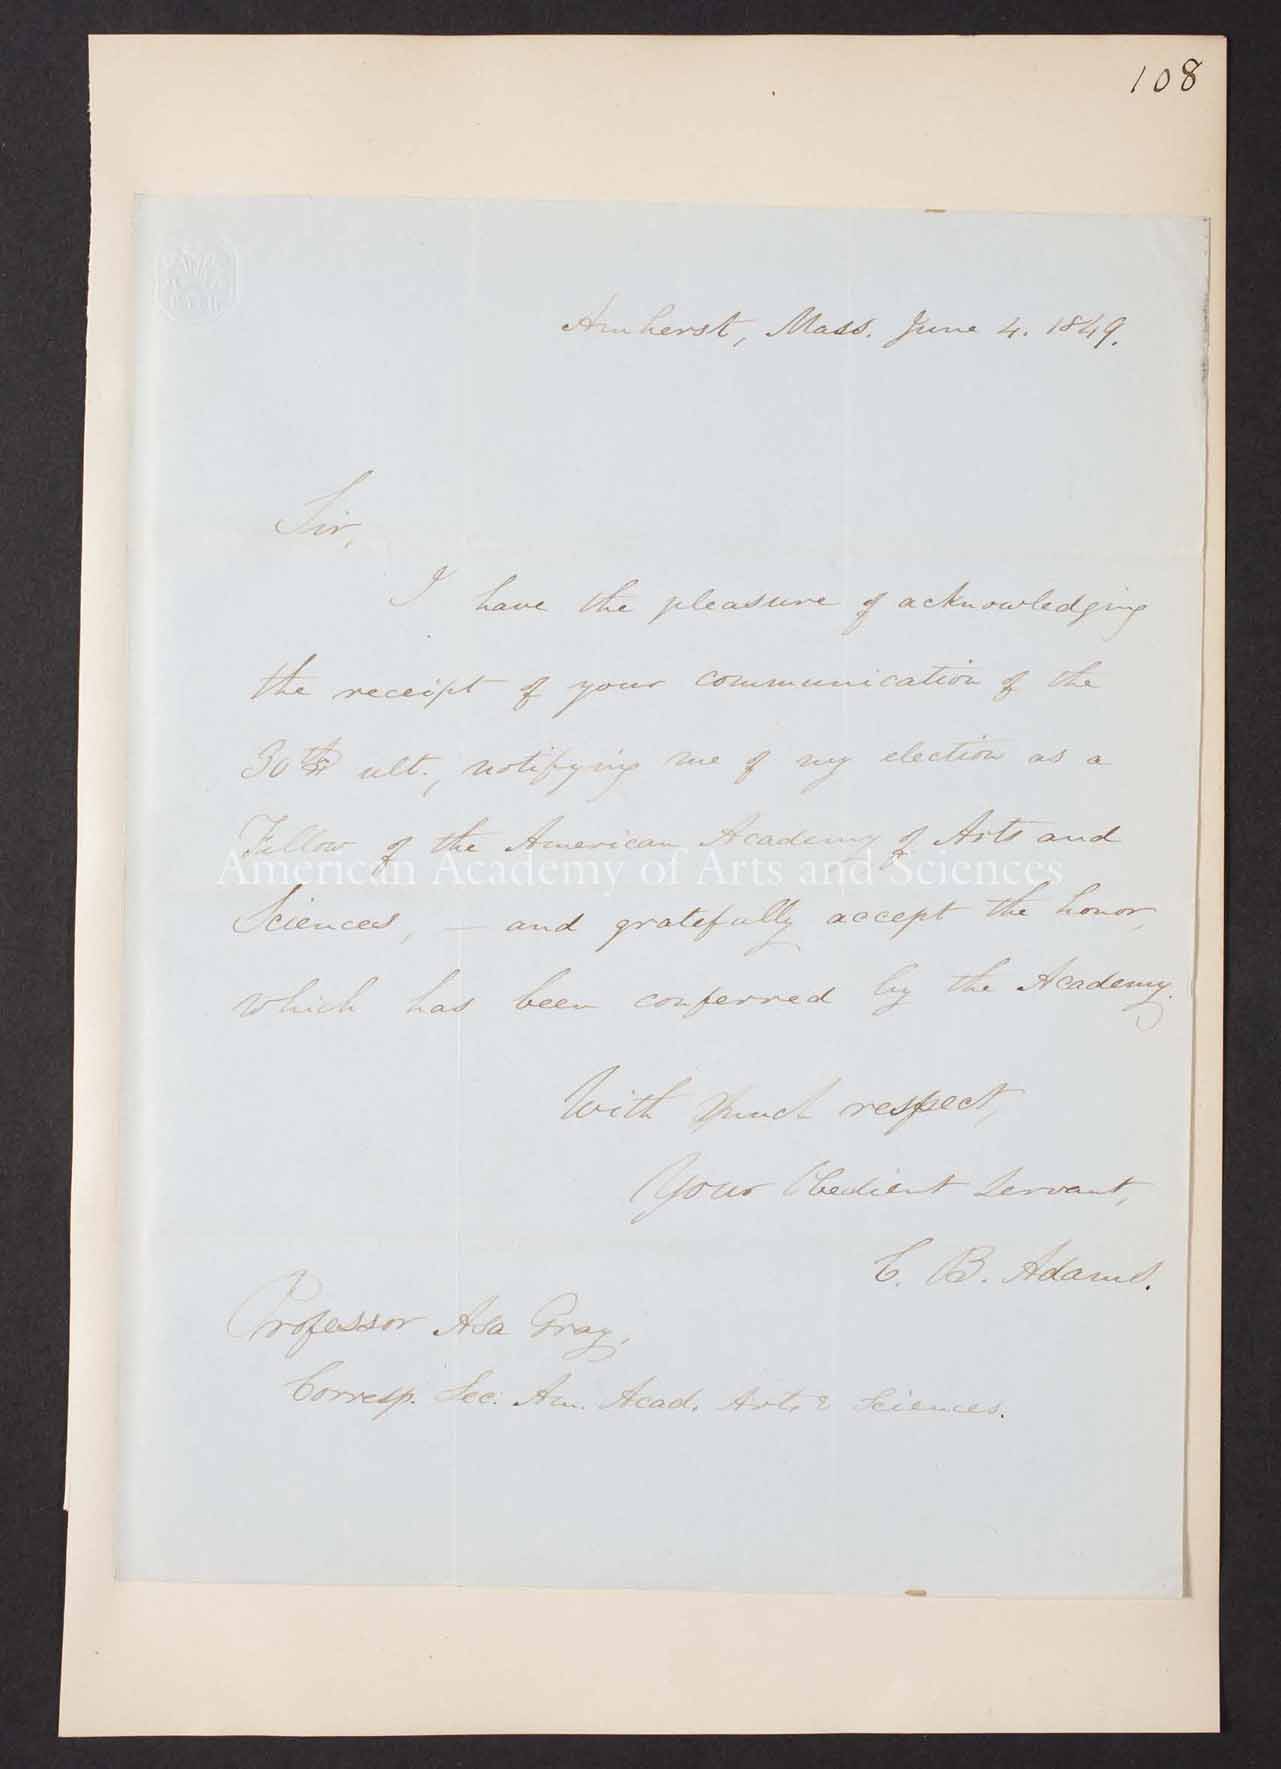 108
Amherst, Mass. June 4. 1849.
Sir,
I have the pleasure of acknowledging
the receipt of your communication of the
30th ult., notifying me of my election as a
Fellow of the American Academy of Arts and
American Academy of Arts and Sciences
Sciences, — and gratefully accept the honor,
which has been conferred by the Academy.
With much respect,
Your Obedient Servant,
C. B. Adams.
Professor Asa Gray,
Corresp. Sec. Am. Acad. Arts & Sciences.